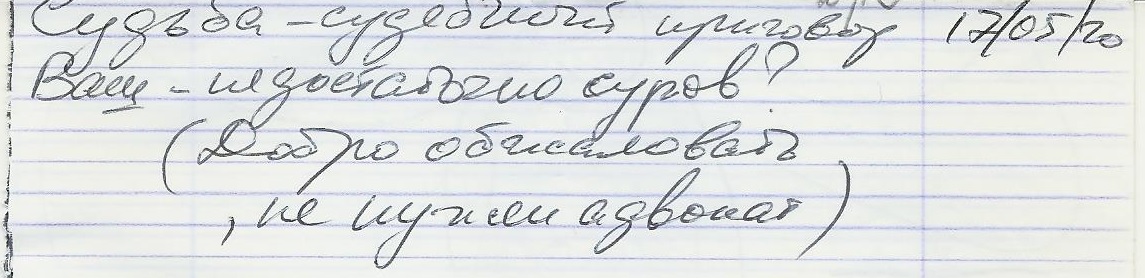 Судьба - судебный приговор 17/05/20
Ваш - недостаточно суров?
(Добро обжаловать
, не нужен адвокат)